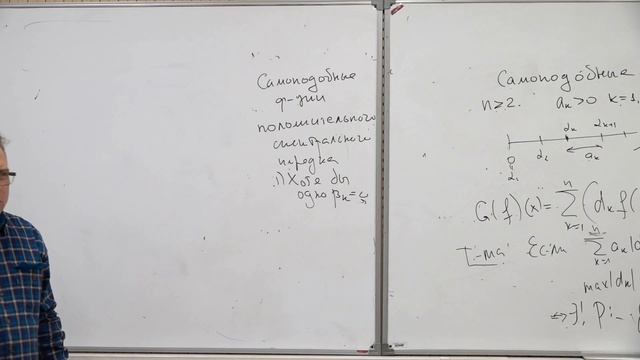 Самоподобные
ф-ции
положительного
спектрального
порядка
1) Хотя бы
одно βₖ=
Самоподобные
n≥2. aₖ>0 k=1.
αₖ αₖ₊₁
0 aₖ
α₁ α₂
G(f)(x)=∑ₖ₌₁ⁿ(dₖf(
Т-ма: Если ∑ₖ₌₁ⁿ aₖ|d
max|dₖ|
⇔ ∃!